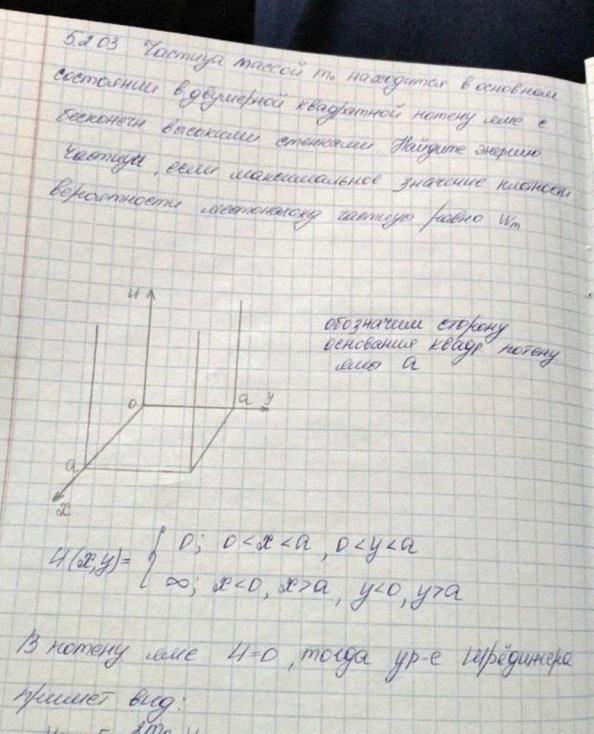 5.2.03 Частица массой m₀ находится в основном
состоянии в двумерной квадратной потенц яме с
бесконечн высокими стенками Найдите энергию
частицы, если максимальное значение плотност
вероятности местонахожд частицы равно Wm
U
обозначим сторону
основания квадр потенц
ямы a
0 a y
a
x
U(x,y)= { 0; 0<x<a, 0<y<a
∞; x<0, x>a, y<0, y>a
В потенц яме U=0, тогда ур-е Шрёдингера
примет вид: